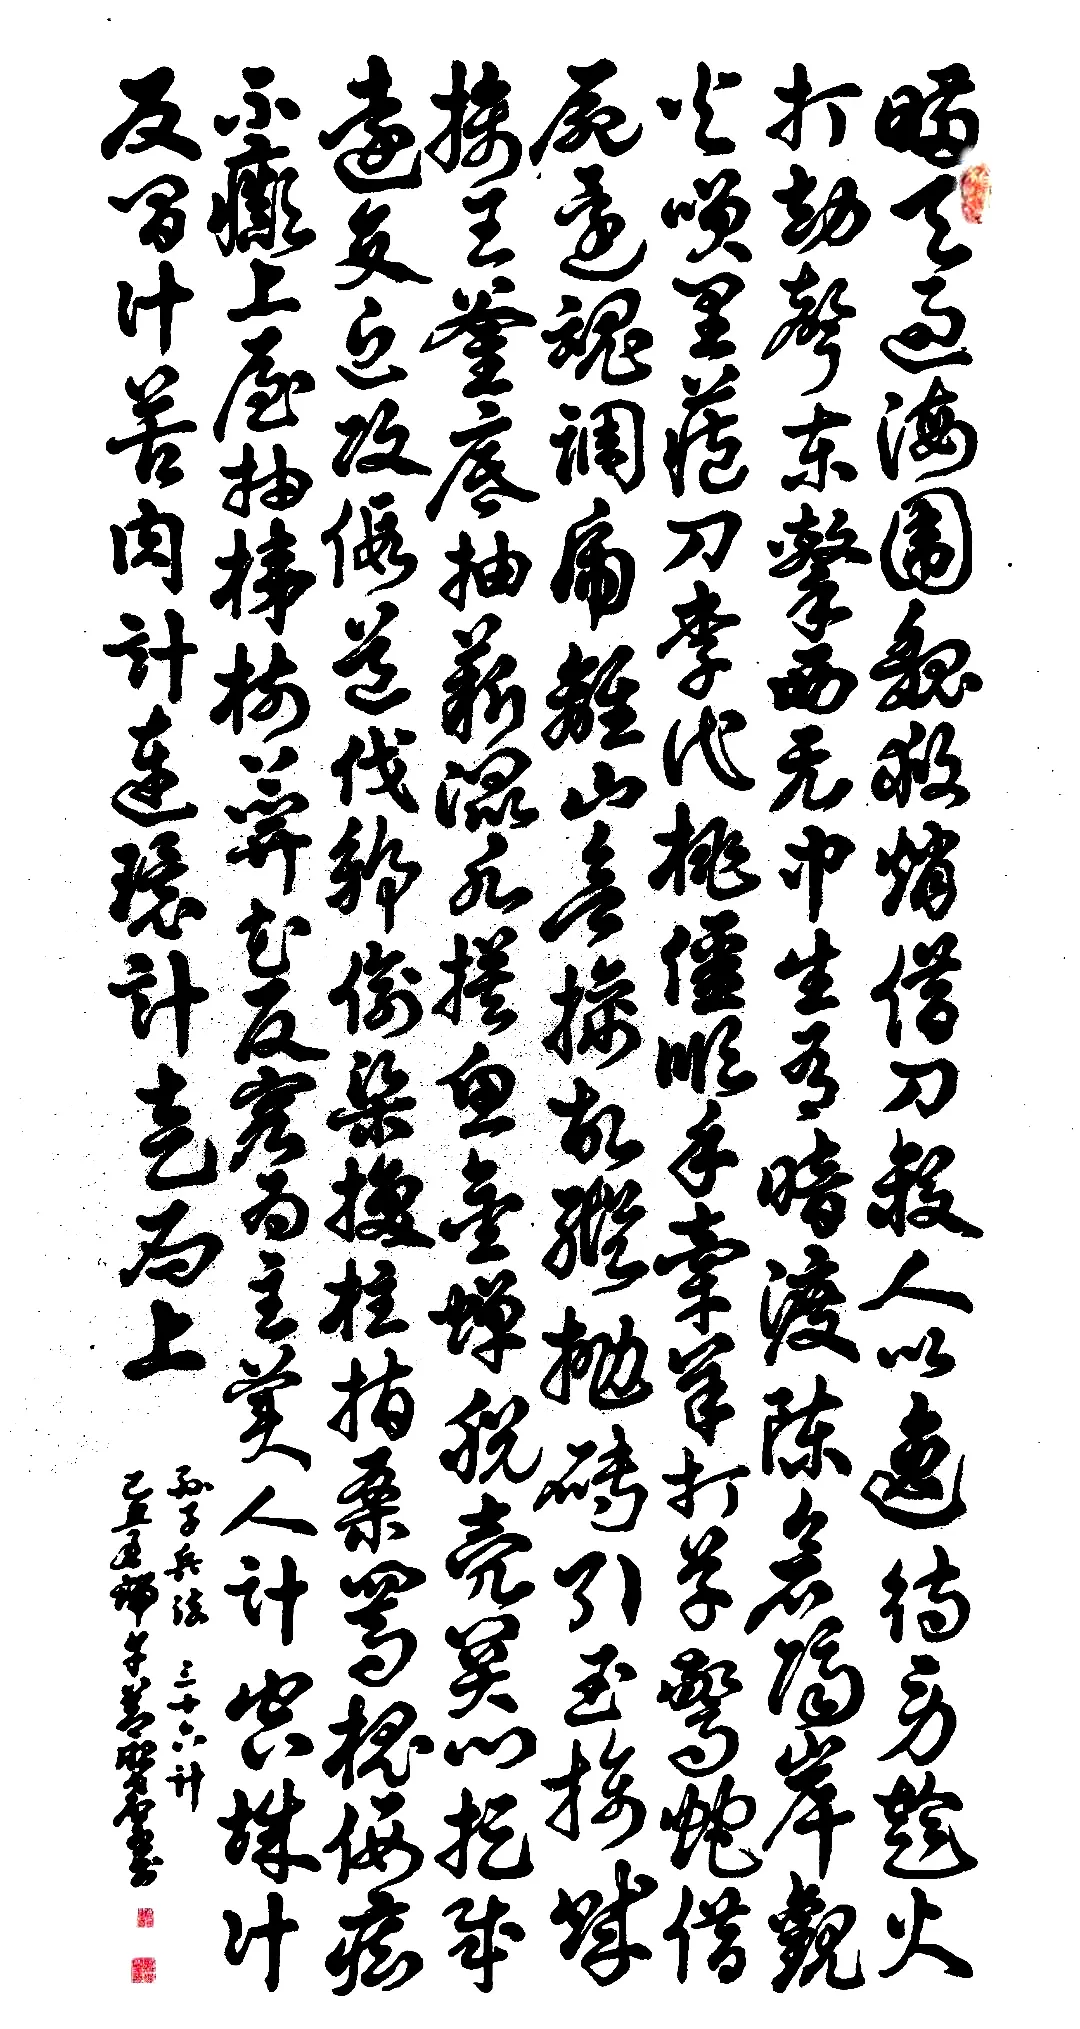 瞒天過海围魏救赵借刀殺人以逸待劳趁火
打劫聲东擊西无中生有暗渡陈倉隔岸觀
火笑里藏刀李代桃僵顺手牵羊打草驚蛇借
屍還魂调虎離山欲擒故縱抛砖引玉擒贼
擒王釜底抽薪混水摸鱼金蝉脱壳关门捉贼
遠交近攻假道伐虢偷梁换柱指桑骂槐假痴
不癫上屋抽梯树上開花反客为主美人計空城计
反间计苦肉計連環計走为上
孙子兵法 三十六计
己丑端午書